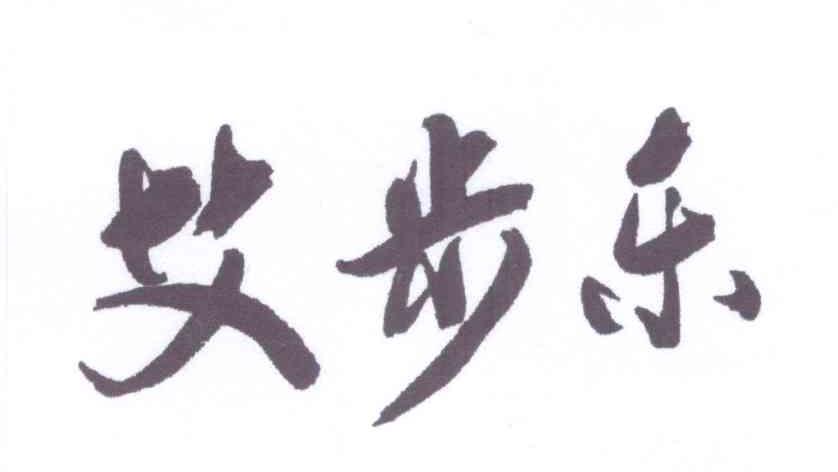 艾步乐